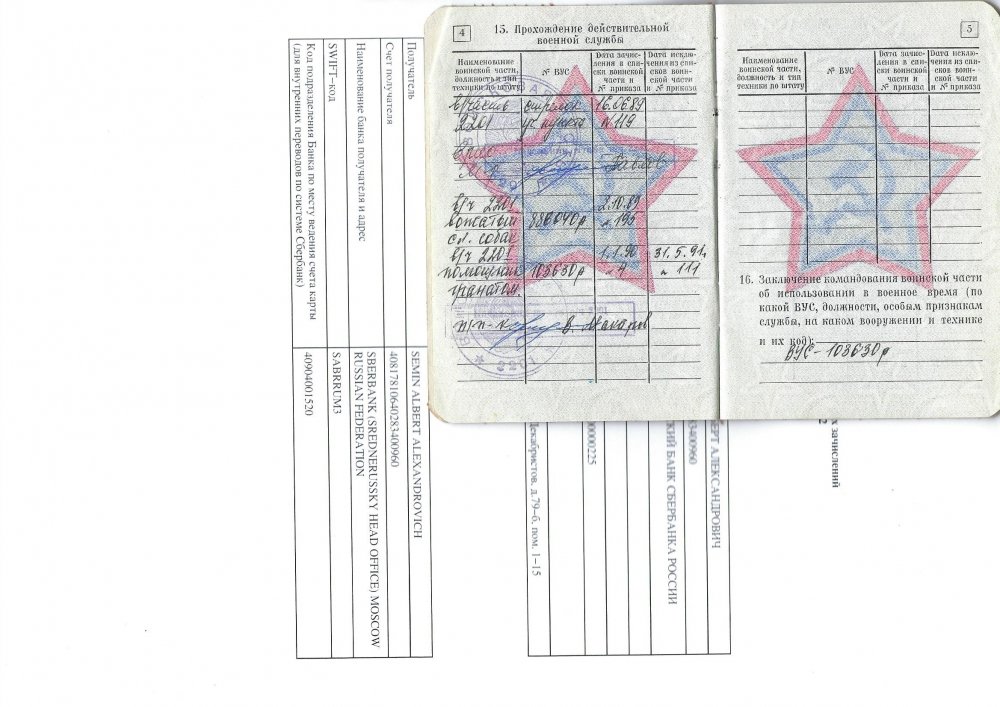 4
15. Прохождение действительной
военной службы
Наименование воинской части, должность и тип техники по штату
№ ВУС
Дата зачисления в списки воинской части и № приказа
Дата исключения из списков воинской части и № приказа
в/часть стрелок 16.06.89
2201 уч. пункта №119
в/ч 2201 2.10.89
вожатый 886040р № 195
сл. собак
в/ч 2201 1.1.90 31.5.91г.
помощник 103630р № 4 № 111
гранатом.
п/п-к В. Макаров
2201
5
Наименование воинской части, должность и тип техники по штату
№ ВУС
Дата зачисления в списки воинской части и № приказа
Дата исключения из списков воинской части и № приказа
16. Заключение командования воинской части
об использовании в военное время (по
какой ВУС, должности, особым признакам
службы, на каком вооружении и технике
и их код):
ВУС - 103630р
х зачислений
ЕРТ АЛЕКСАНДРОВИЧ
83400960
СКИЙ БАНК СБЕРБАНКА РОССИИ
00000225
Декабристов, д.79-б, пом. 1-15
Получатель
SEMIN ALBERT ALEXANDROVICH
Счет получателя
40817810640283400960
Наименование банка получателя и адрес
SBERBANK (SREDNERUSSKY HEAD OFFICE) MOSCOW
RUSSIAN FEDERATION
SWIFT-код
SABRRUM3
Код подразделения Банка по месту ведения счета карты
(для внутренних переводов по системе Сбербанк)
40904001520